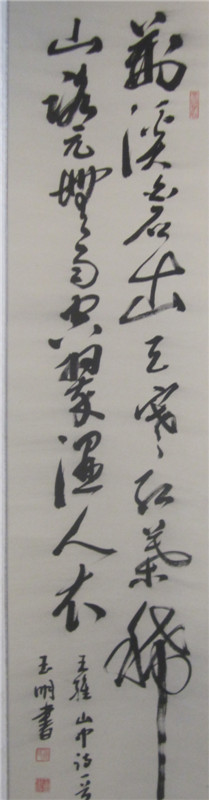 荊溪白石出天寒紅葉稀
山路元無雨空翠濕人衣
王維山中詩一首
玉明書